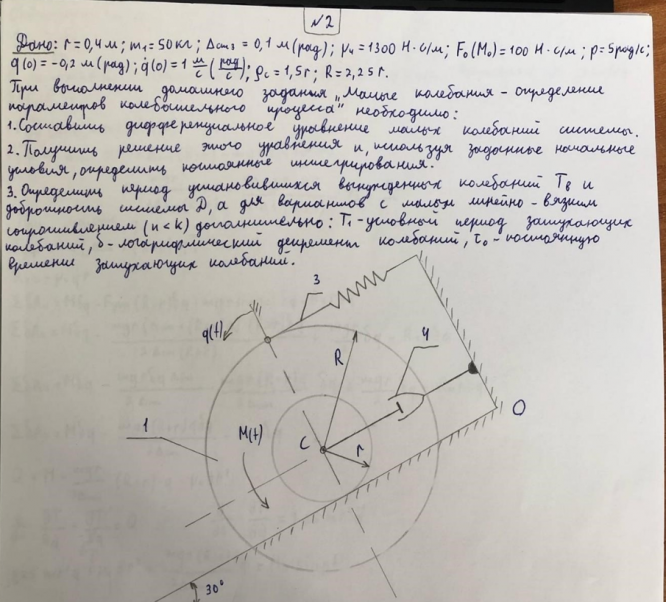 №2
Дано: r = 0,4 м; m₁ = 50 кг; Δст3 = 0,1 м (рад); μ4 = 1300 Н·с/м; F₀(M₀) = 100 Н·с/м; p = 5 рад/с;
q(0) = -0,2 м (рад); q̇(0) = 1 м/с (рад/с); ρc = 1,5r; R = 2,25r.
При выполнении домашнего задания „Малые колебания – определение
параметров колебательного процесса" необходимо:
1. Составить дифференциальное уравнение малых колебаний системы.
2. Получить решение этого уравнения и, используя заданные начальные
условия, определить постоянные интегрирования.
3. Определить период установившихся вынужденных колебаний Tв и
добротность системы D, а для вариантов с малым линейно-вязким
сопротивлением (n<k) дополнительно: T₁-условный период затухающих
колебаний, δ-логарифмический декремент колебаний, τ₀-постоянную
времени затухающих колебаний.
3
q(t)
R
4
O
1
M(t)
C
r
30°